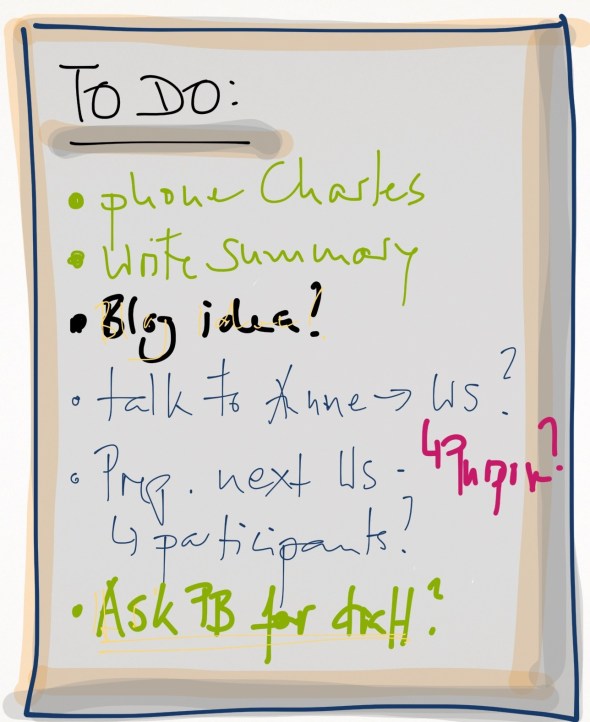 To Do:
• phone Charles
• Write Summary
• Blog idea?
• talk to Anne → WS?
• Prep. next WS -
↳ Purpose?
↳ participants?
• Ask PB for draft?